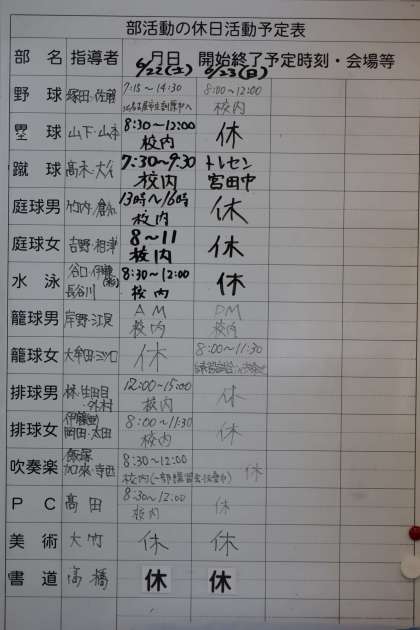 部活動の休日活動予定表
部 名 指導者 月日 開始終了予定時刻・会場等
6/22(土) 6/23(日)
野 球 塚田・佐藤 7:15〜14:30 8:00〜12:00
校内
塁 球 山下・山本 8:30〜12:00 休
校内
蹴 球 高木・大谷 7:30〜9:30 トレセン
校内 宮田中
庭球男 竹内・倉知 13時〜16時 休
校内
庭球女 吉野・相津 8〜11 休
校内
水 泳 谷口・伊藤 8:30〜12:00 休
長谷川 校内
籠球男 岸野・江尻 AM PM
校内 校内
籠球女 大牟田・三ツ口 休 8:00〜11:30
排球男 林・生田目 12:00〜15:00 休
・外村 校内
排球女 伊藤 8:00〜11:30 休
岡田・太田 校内
吹奏楽 飯塚 8:30〜12:00 休
加来・寺西 校内(一部講習会
P C 高田 8:30〜12:00 休
校内
美 術 大竹 休 休
書 道 高橋 休 休